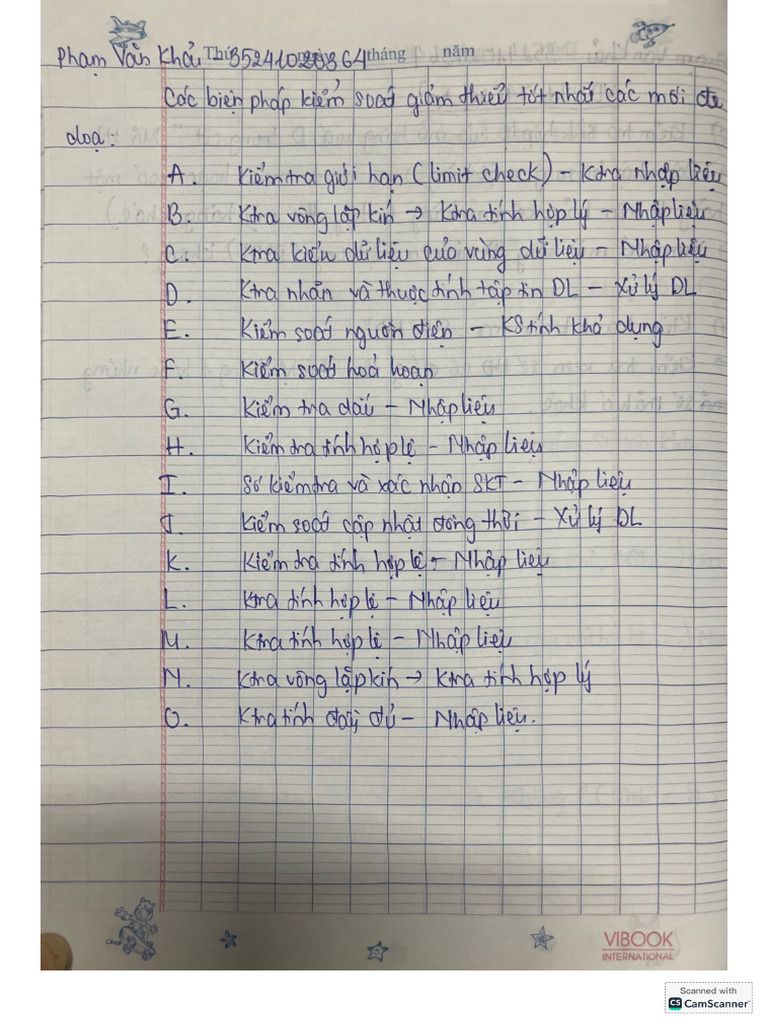 Phạm Văn Khải Thứ 35241020364 tháng năm
Các biện pháp kiểm soát giảm thiểu tốt nhất các mối đe
dọa:
A. Kiểm tra giới hạn (limit check) – Ktra nhập liệu
B. Ktra vòng lặp kín → Ktra tính hợp lý – Nhập liệu
C. Ktra kiểu dữ liệu của vùng dữ liệu – Nhập liệu
D. Ktra nhãn và thuộc tính tập tin DL – Xử lý DL
E. Kiểm soát nguồn điện – KS tính khả dụng
F. Kiểm soát hoả hoạn
G. Kiểm tra dấu – Nhập liệu
H. Kiểm tra tính hợp lệ – Nhập liệu
I. Số kiểm tra và xác nhận SKT – Nhập liệu
J. Kiểm soát cập nhật đồng thời – Xử lý DL
K. Kiểm tra tính hợp lệ – Nhập liệu
L. Ktra tính hợp lệ – Nhập liệu
M. Ktra tính hợp lệ – Nhập liệu
N. Ktra vòng lặp kín → Ktra tính hợp lý
O. Ktra tính đầy đủ – Nhập liệu.
VIBOOK
INTERNATIONAL
Scanned with
CS CamScanner